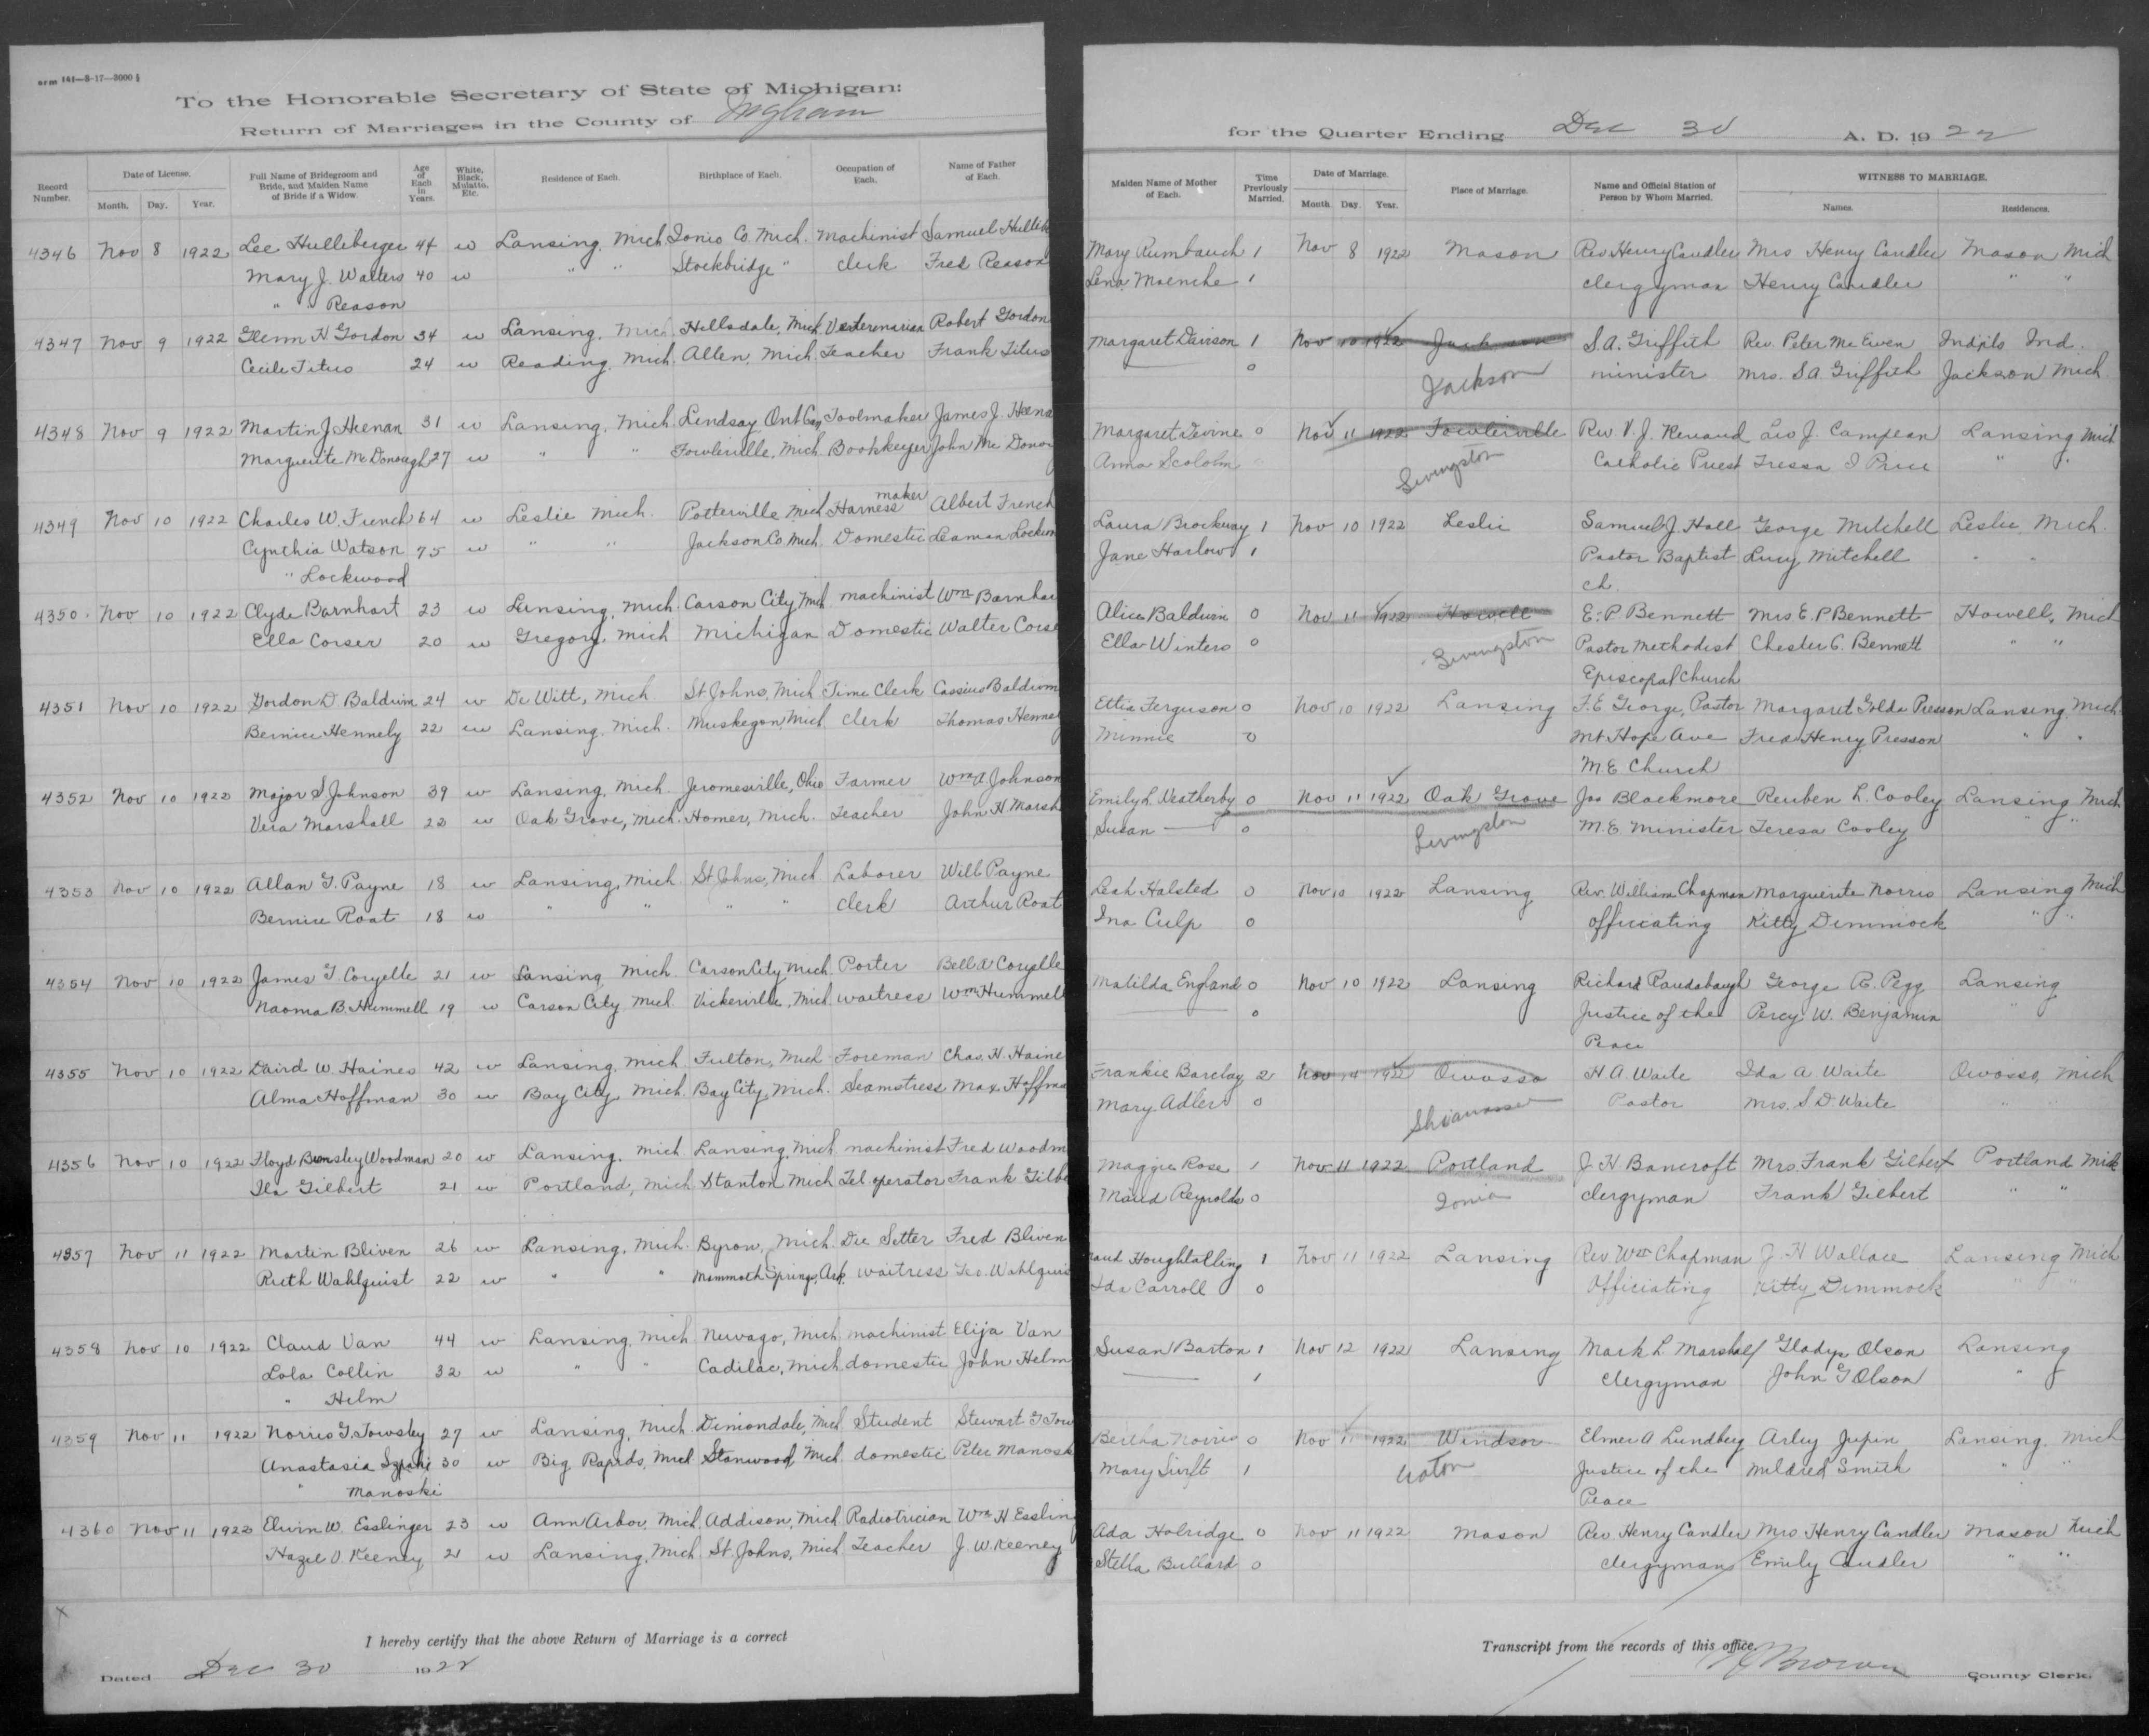 orm 141—8-17—3000
To the Honorable Secretary of State of Michigan:
Return of Marriages in the County of Ingham
for the Quarter Ending Dec 30 A. D. 1922
Record Number.
Date of License.
Month. Day. Year.
Full Name of Bridegroom and Bride, and Maiden Name of Bride if a Widow.
Age of Each in Years.
White, Black, Mulatto, Etc.
Residence of Each.
Birthplace of Each.
Occupation of Each.
Name of Father of Each.
Maiden Name of Mother of Each.
Time Previously Married.
Date of Marriage.
Month Day. Year.
Place of Marriage.
Name and Official Station of Person by Whom Married.
WITNESS TO MARRIAGE.
Names.
Residences.
4346 Nov 8 1922 Lee Hulliberger 44 w Lansing, Mich Ionia Co. Mich. Machinist Samuel Mary Rumbauch 1 Nov 8 1922 Mason Rev Henry Candler Mrs Henry Candler Mason Mich
Mary J. Walters 40 w " " Stockbridge " Clerk Fred Reason Lena Moenche 1 clergyman Henry Candler " "
" " Reason
4347 Nov 9 1922 Glenn H Gordon 34 w Lansing, Mich Hillsdale, Mich Veterenarian Robert Gordon Margaret Davison 1 Nov 10 1922 Jackson S.A. Griffith Rev. Peter McEwen Indpls Ind.
Cecile Titus 24 w Reading, Mich. Allen, Mich. Teacher Frank Titus 0 Jackson minister Mrs. S A Griffith Jackson Mich
4348 Nov 9 1922 Martin J Heenan 31 w Lansing, Mich Lindsay Ont Can Toolmaker James J. Heena Margaret Devine 0 Nov 11 1922 Fowlerville Rev V. J. Renaud Leo J. Campean Lansing Mich
Marguerite McDonough 27 w " " Fowlerville, Mich. Bookkeeper John Mc Dono Anna Livingston Catholic Priest Tressa I Price " "
4349 Nov 10 1922 Charles W. French 64 w Leslie Mich. Potterville Mich Harness maker Albert French Laura Brockway 1 Nov 10 1922 Leslie Samuel J. Hall George Mitchell Leslie, Mich.
Cynthia Watson 75 w " " Jackson Co Mich. Domestic Leaman Lockwo Jane Harlow 1 Pastor Baptist Lucy Mitchell " "
" Lockwood ch.
4350 Nov 10 1922 Clyde Barnhart 23 w Lansing, Mich. Carson City, Mich machinist Wm Barnha Alice Baldwin 0 Nov 11 1922 Howell E. P. Bennett Mrs E. P Bennett Howell, Mich
Ella Corser 20 w Gregory, Mich Michigan Domestic Walter Corse Ella Winters 0 Livingston Pastor Methodist Chester C. Bennett " "
Episcopal Church
4351 Nov 10 1922 Gordon D Baldwin 24 w De Witt, Mich St Johns, Mich Time Clerk Cassius Baldwin Ettie Ferguson 0 Nov 10 1922 Lansing F. E George, Pastor Margaret Golda Presson Lansing Mich.
Bernice Hennely 22 w Lansing, Mich. Muskegon, Mich Clerk Thomas Henne Minnie 0 Mt Hope Ave Fred Henry Presson " "
M. E. Church
4352 Nov 10 1922 Major S Johnson 39 w Lansing, Mich. Jeromesville, Ohio Farmer Wm A. Johnson Emily L Weatherby 0 Nov 11 1922 Oak Grove Jos Blackmore Reuben L. Cooley Lansing Mich
Vera Marshall 22 w Oak Grove, Mich. Homer, Mich. Teacher John H Marsh Susan — 0 Livingston M. E. Minister Teresa Cooley " "
4353 Nov 10 1922 Allan G. Payne 18 w Lansing, Mich. St Johns, Mich Laborer Will Payne Leah Halsted 0 Nov 10 1922 Lansing Rev. William Chapman Marguerite Norris Lansing Mich
Bernice Roat 18 w " " " " Clerk Arthur Roat Ina Culp 0 officiating Kitty Dimmock " "
4354 Nov 10 1922 James G Coryelle 21 w Lansing Mich. Carson City Mich. Porter Bell A Coryelle Matilda England 0 Nov 10 1922 Lansing Richard Raudabaugh George R. Pegg Lansing
Naoma B. Hummell 19 w Carson City Mich. Vickeryville, Mich. waitress Wm Hummell — 0 Justice of the Percy W. Benjamin "
Peace
4355 Nov 10 1922 Laird W. Haines 42 w Lansing, Mich. Fulton, Mich Foreman Chas. H. Haine Frankie Barclay 2 Nov 14 1922 Owosso H A. Waite Ida A. Waite Owosso, Mich
Alma Hoffman 30 w Bay City, Mich. Bay City, Mich. Seamstress Max Hoffma Mary Adler 0 Shiawassee Pastor Mrs. S D. Waite " "
4356 Nov 10 1922 Floyd Woodman 20 w Lansing, Mich Lansing, Mich machinist Fred Woodm Maggie Rose 1 Nov 11 1922 Portland J H Bancroft Mrs. Frank Gilbert Portland Mich
Ila Gilbert 21 w Portland, Mich Stanton Mich Tel. operator Frank Gilbe Maud Reynolds 0 Ionia clergyman Frank Gilbert " "
4357 Nov 11 1922 Martin Bliven 26 w Lansing, Mich. Byron, Mich. Die Setter Fred Bliven aud Houghtalling 1 Nov 11 1922 Lansing Rev Wm Chapman J. H Wallace Lansing Mich
Ruth Wahlquist 22 w " " Mammoth Springs, Ark. waitress Geo. Wahlquis Ida Carroll 0 Officiating Kitty Dimmock " "
4358 Nov 10 1922 Claud Van 44 w Lansing, Mich Newago, Mich machinist Elija Van Susan Barton 1 Nov 12 1922 Lansing Mark L Marshall Gladys Olson Lansing
Lola Collin 32 w " " Cadilac, Mich domestic John Helm — 1 Clergyman John G Olson "
" Helm
4359 Nov 11 1922 Norris G. Towsley 27 w Lansing, Mich. Dimondale, Mich Student Stewart G Tow Bertha Norris 0 Nov 11 1922 Windsor Elmer A Lundberg Arley Jupin Lansing, Mich
Anastasia 30 w Big Rapids, Mich Stanwood, Mich. domestic Peter Manosk Mary Swift 1 Eaton Justice of the Mildred Smith " "
" Manoski Peace
4360 Nov 11 1922 Elwin W. Esslinger 23 w Ann Arbor, Mich. Addison, Mich Radiotrician Wm H Essling Ada Holridge 0 Nov 11 1922 Mason Rev Henry Candler Mrs Henry Candler Mason Mich
Hazel V Keeney 21 w Lansing, Mich St. Johns, Mich Teacher J. W. Keeney Stella Bullard 0 clergyman Emily Candler " "
I hereby certify that the above Return of Marriage is a correct
Transcript from the records of this office.
Dated Dec 30 1922
County Clerk.